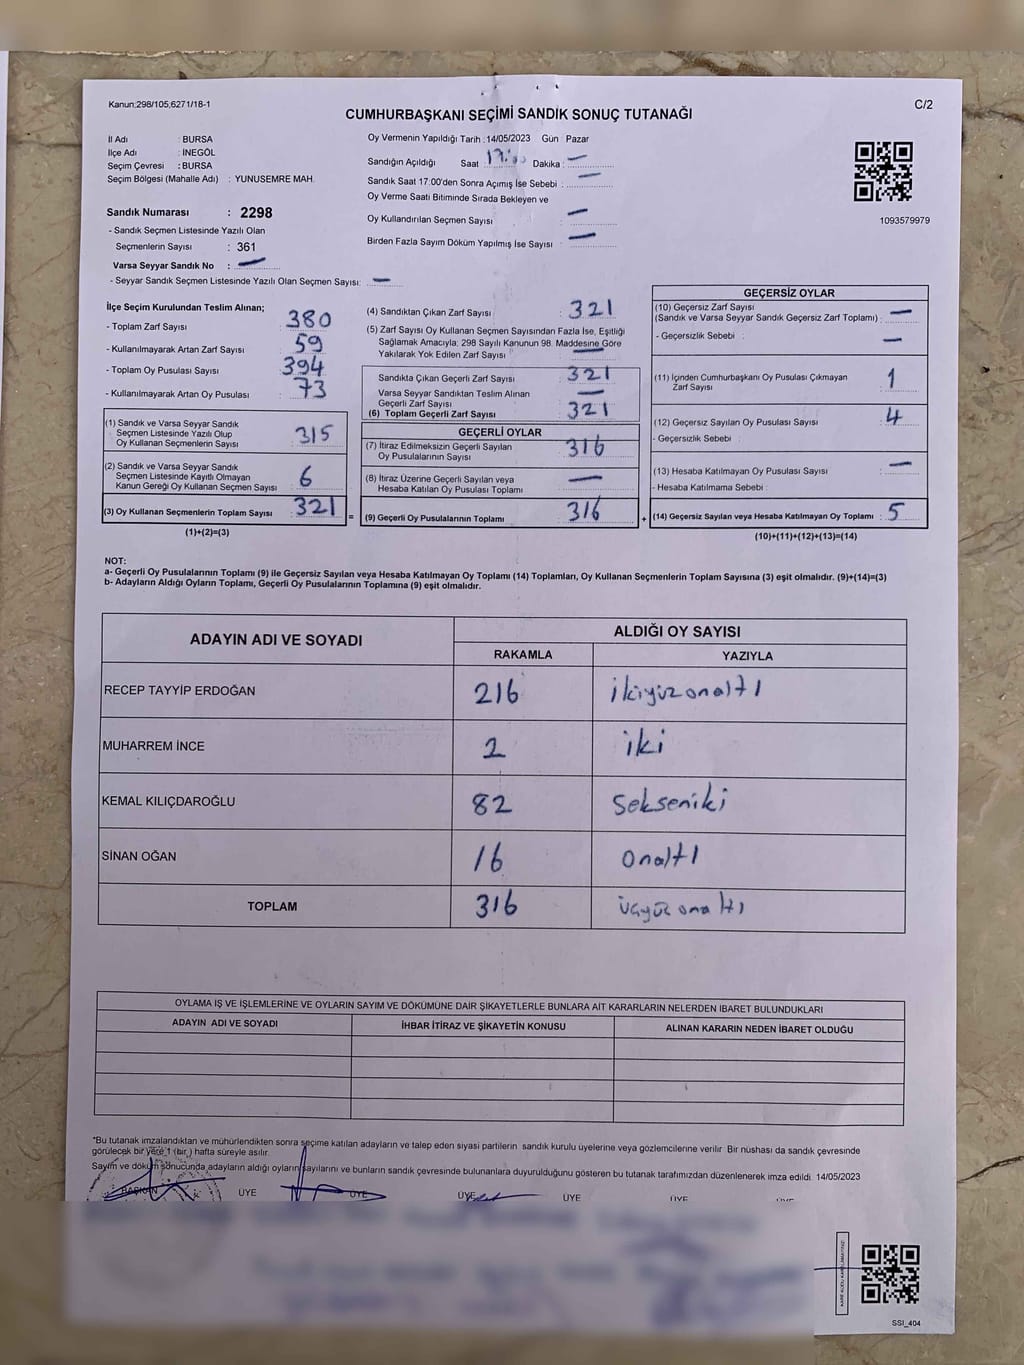 Kanun:298/105,6271/18-1
C/2
CUMHURBAŞKANI SEÇİMİ SANDIK SONUÇ TUTANAĞI
İl Adı : BURSA
İlçe Adı : İNEGÖL
Seçim Çevresi : BURSA
Seçim Bölgesi (Mahalle Adı) : YUNUSEMRE MAH.
Sandık Numarası : 2298
- Sandık Seçmen Listesinde Yazılı Olan
Seçmenlerin Sayısı : 361
Varsa Seyyar Sandık No : —
- Seyyar Sandık Seçmen Listesinde Yazılı Olan Seçmen Sayısı: —
Oy Vermenin Yapıldığı Tarih : 14/05/2023 Gün Pazar
Sandığın Açıldığı Saat 17:00 Dakika : —
Sandık Saat 17:00'den Sonra Açımış İse Sebebi : —
Oy Verme Saati Bitiminde Sırada Bekleyen ve
Oy Kullandırılan Seçmen Sayısı : —
Birden Fazla Sayım Döküm Yapılmış İse Sayısı : —
1093579979
İlçe Seçim Kurulundan Teslim Alınan;
- Toplam Zarf Sayısı : 380
- Kullanılmayarak Artan Zarf Sayısı : 59
- Toplam Oy Pusulası Sayısı : 394
- Kullanılmayarak Artan Oy Pusulası : 73
(1) Sandık ve Varsa Seyyar Sandık
Seçmen Listesinde Yazılı Olup
Oy Kullanan Seçmenlerin Sayısı : 315
(2) Sandık ve Varsa Seyyar Sandık
Seçmen Listesinde Kayıtlı Olmayan
Kanun Gereği Oy Kullanan Seçmen Sayısı : 6
(3) Oy Kullanan Seçmenlerin Toplam Sayısı : 321
(1)+(2)=(3)
(4) Sandıktan Çıkan Zarf Sayısı : 321
(5) Zarf Sayısı Oy Kullanan Seçmen Sayısından Fazla İse, Eşitliği
Sağlamak Amacıyla; 298 Sayılı Kanunun 98. Maddesine Göre
Yakılarak Yok Edilen Zarf Sayısı : —
Sandıkta Çıkan Geçerli Zarf Sayısı : 321
Varsa Seyyar Sandıktan Teslim Alınan
Geçerli Zarf Sayısı : —
(6) Toplam Geçerli Zarf Sayısı : 321
GEÇERLİ OYLAR
(7) İtiraz Edilmeksizin Geçerli Sayılan
Oy Pusulalarının Sayısı : 316
(8) İtiraz Üzerine Geçerli Sayılan veya
Hesaba Katılan Oy Pusulası Toplamı : —
= (9) Geçerli Oy Pusulalarının Toplamı : 316
GEÇERSİZ OYLAR
(10) Geçersiz Zarf Sayısı
(Sandık ve Varsa Seyyar Sandık Geçersiz Zarf Toplamı) : —
- Geçersizlik Sebebi : —
(11) İçinden Cumhurbaşkanı Oy Pusulası Çıkmayan
Zarf Sayısı : 1
(12) Geçersiz Sayılan Oy Pusulası Sayısı : 4
- Geçersizlik Sebebi :
(13) Hesaba Katılmayan Oy Pusulası Sayısı : —
- Hesaba Katılmama Sebebi :
+ (14) Geçersiz Sayılan veya Hesaba Katılmayan Oy Toplamı : 5
(10)+(11)+(12)+(13)=(14)
NOT:
a- Geçerli Oy Pusulalarının Toplamı (9) ile Geçersiz Sayılan veya Hesaba Katılmayan Oy Toplamı (14) Toplamları, Oy Kullanan Seçmenlerin Toplam Sayısına (3) eşit olmalıdır. (9)+(14)=(3)
b- Adayların Aldığı Oyların Toplamı, Geçerli Oy Pusulalarının Toplamına (9) eşit olmalıdır.
ADAYIN ADI VE SOYADI
ALDIĞI OY SAYISI
RAKAMLA YAZIYLA
RECEP TAYYİP ERDOĞAN 216 ikiyüzonaltı
MUHARREM İNCE 2 iki
KEMAL KILIÇDAROĞLU 82 Sekseniki
SİNAN OĞAN 16 Onaltı
TOPLAM 316 üçyüzonaltı
OYLAMA İŞ VE İŞLEMLERİNE VE OYLARIN SAYIM VE DÖKÜMÜNE DAİR ŞİKAYETLERLE BUNLARA AİT KARARLARIN NELERDEN İBARET BULUNDUKLARI
ADAYIN ADI VE SOYADI İHBAR İTİRAZ VE ŞİKAYETİN KONUSU ALINAN KARARIN NEDEN İBARET OLDUĞU
*Bu tutanak imzalandıktan ve mühürlendikten sonra seçime katılan adayların ve talep eden siyasi partilerin sandık kurulu üyelerine veya gözlemcilerine verilir. Bir nüshası da sandık çevresinde
görülecek bir yere 1 (bir ) hafta süreyle asılır.
Sayım ve döküm sonucunda adayların aldığı oyların sayılarını ve bunların sandık çevresinde bulunanlara duyurulduğunu gösteren bu tutanak tarafımızdan düzenlenerek imza edildi. 14/05/2023
BAŞKAN ÜYE ÜYE ÜYE ÜYE ÜYE ÜYE
SSI_404